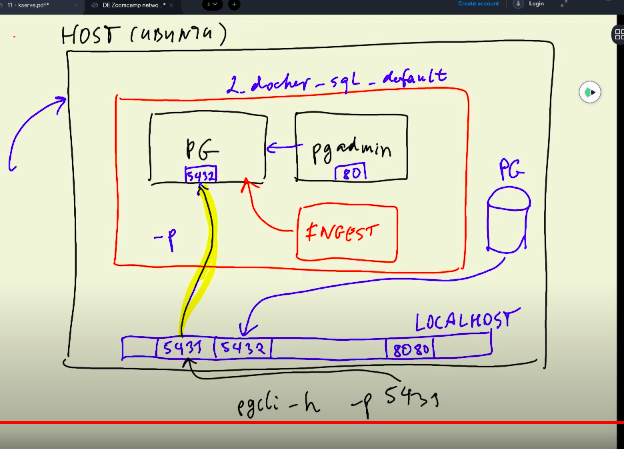 11 - kserve.pdf*
DE Zoomcamp netwo..*
Create account
Login
HOST (UBUNTU)
2_docker_sql_default
PG
5432
pgadmin
80
PG
-P
INGEST
LOCALHOST
5431
5432
8080
pgcli -h -p 5431